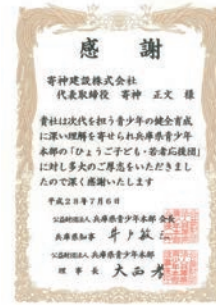 感謝
寄神建設株式会社
代表取締役 寄神 正文 様
貴社は次代を担う青少年の健全育成
に深い理解を寄せられ兵庫県青少年
本部の「ひょうご子ども・若者応援団」
に対し多大のご厚志をいただきまし
たので深く感謝いたします
平成28年7月6日
公益財団法人 兵庫県青少年本部 会長
兵庫県知事 井戸敏三
公益財団法人 兵庫県青少年本部
理事長 大西孝